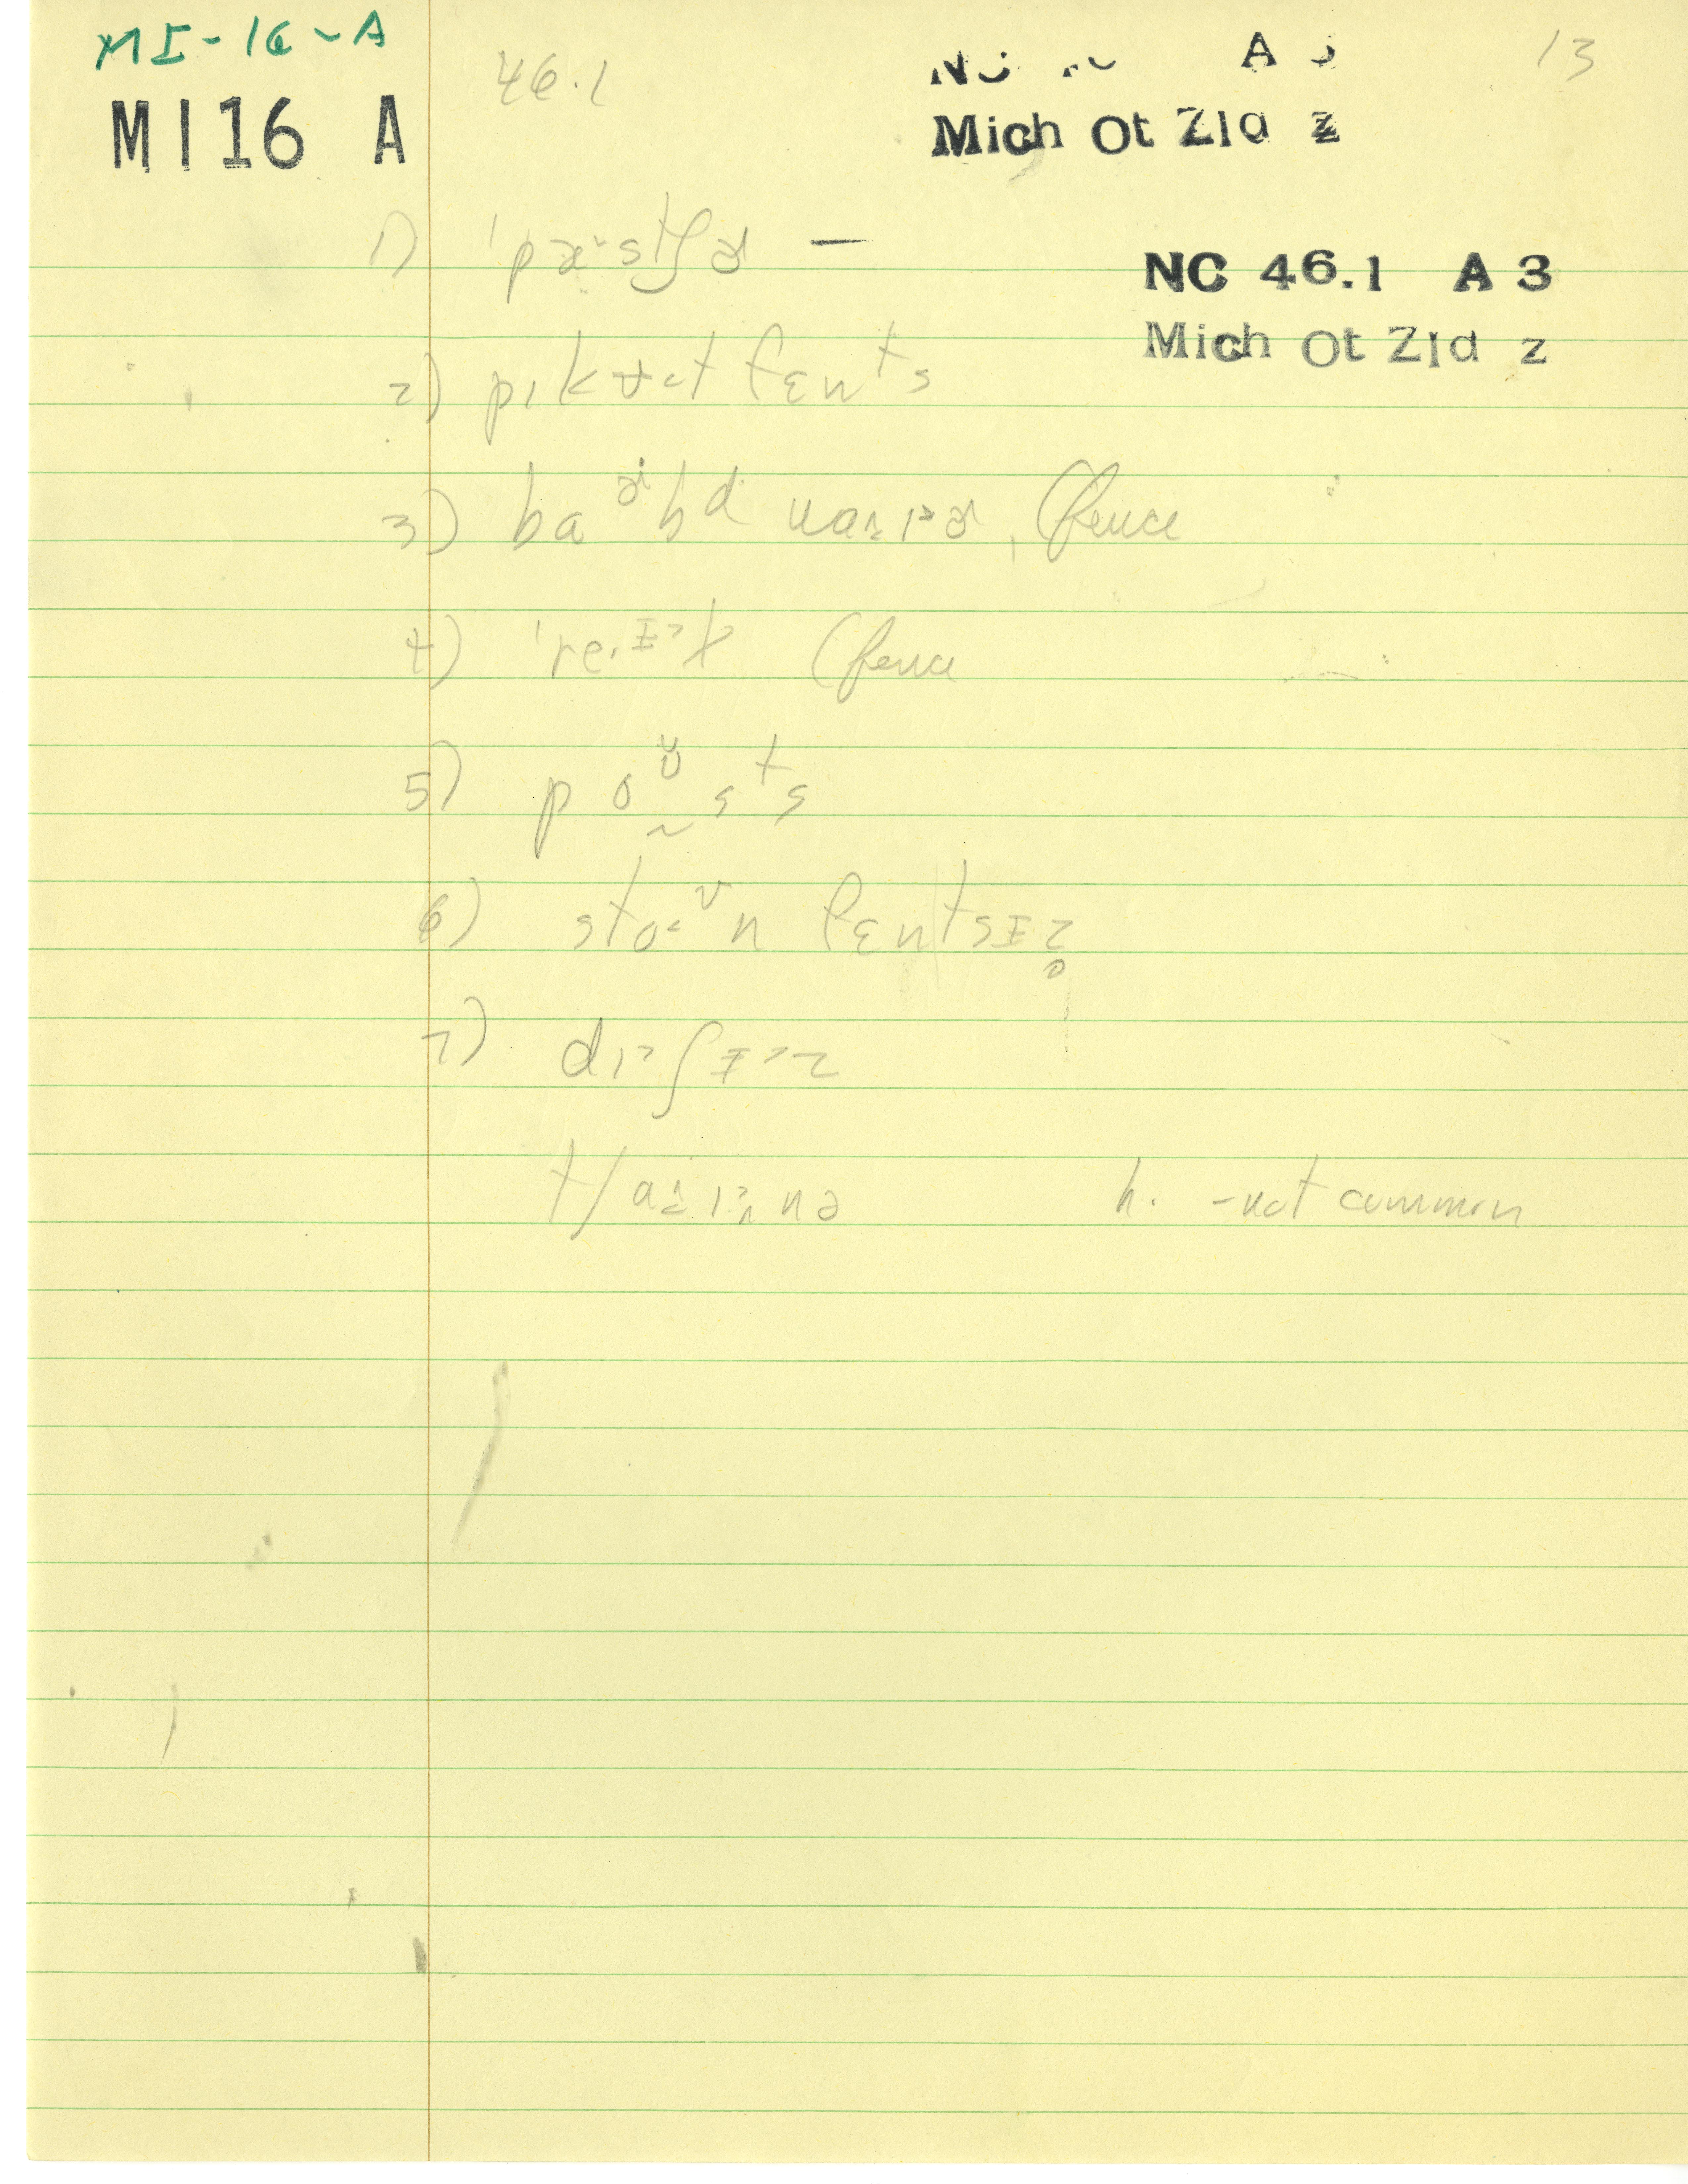 MI-16-A
MI16 A
46.1
A 3
13
Mich Ot Zld z
NC 46.1 A 3
Mich Ot Zld z
1) ˈpæ˅stʃɚ —
2) pɪkʉ˂t fɛnᵗs
3) baᵊ˞bᵈ fence
4) ˈre fence
5) poᶷsᵗs
6) sto˂ᶷn fɛntsɪz̥
7) dɪ˃ʃɪ˃z
h. - not common